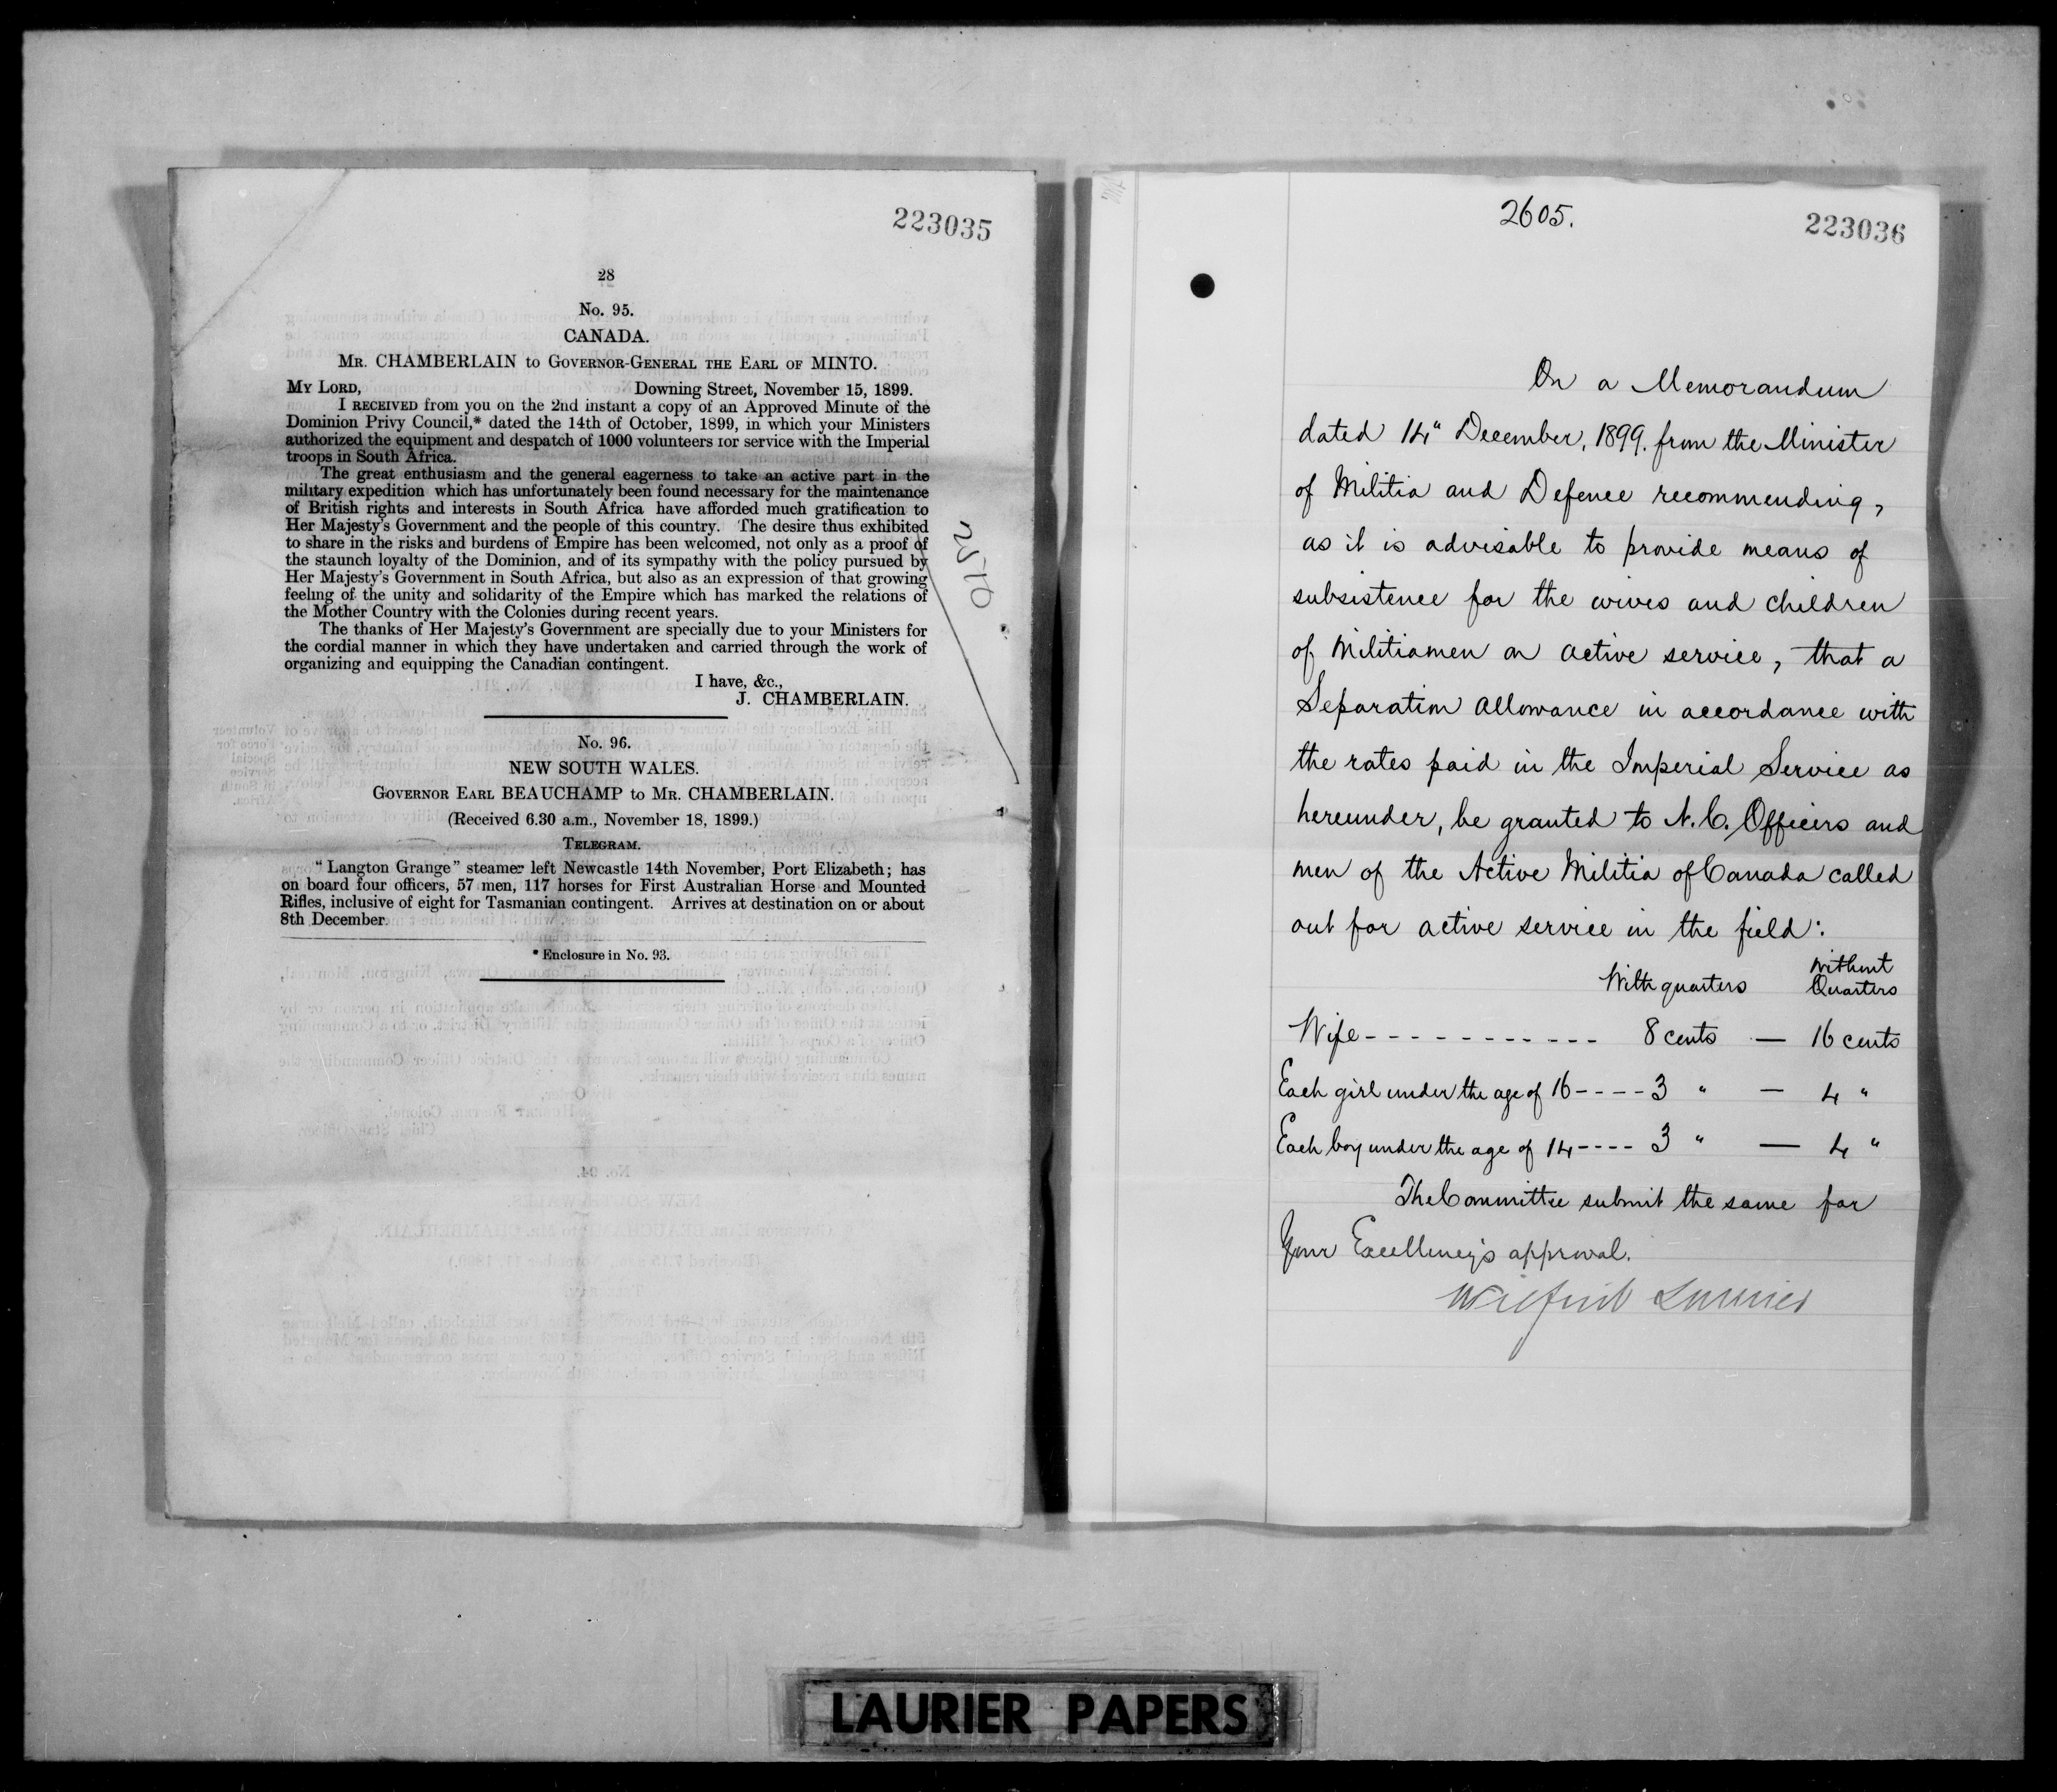 223035
28
No. 95.
CANADA.
MR. CHAMBERLAIN to GOVERNOR-GENERAL THE EARL OF MINTO.
MY LORD, Downing Street, November 15, 1899.
I RECEIVED from you on the 2nd instant a copy of an Approved Minute of the
Dominion Privy Council,* dated the 14th of October, 1899, in which your Ministers
authorized the equipment and despatch of 1000 volunteers for service with the Imperial
troops in South Africa.
The great enthusiasm and the general eagerness to take an active part in the
military expedition which has unfortunately been found necessary for the maintenance
of British rights and interests in South Africa have afforded much gratification to
Her Majesty's Government and the people of this country. The desire thus exhibited
to share in the risks and burdens of Empire has been welcomed, not only as a proof of
the staunch loyalty of the Dominion, and of its sympathy with the policy pursued by
Her Majesty's Government in South Africa, but also as an expression of that growing
feeling of the unity and solidarity of the Empire which has marked the relations of
the Mother Country with the Colonies during recent years.
The thanks of Her Majesty's Government are specially due to your Ministers for
the cordial manner in which they have undertaken and carried through the work of
organizing and equipping the Canadian contingent.
I have, &c.,
J. CHAMBERLAIN.
No. 96.
NEW SOUTH WALES.
GOVERNOR EARL BEAUCHAMP to MR. CHAMBERLAIN.
(Received 6.30 a.m., November 18, 1899.)
TELEGRAM.
"Langton Grange" steamer left Newcastle 14th November, Port Elizabeth; has
on board four officers, 57 men, 117 horses for First Australian Horse and Mounted
Rifles, inclusive of eight for Tasmanian contingent. Arrives at destination on or about
8th December.
* Enclosure in No. 93.
2605.
223036
On a Memorandum
dated 14" December, 1899, from the Minister
of Militia and Defence recommending,
as it is advisable to provide means of
subsistence for the wives and children
of Militiamen on active service, that a
Separation Allowance in accordance with
the rates paid in the Imperial Service as
hereunder, be granted to N.C. Officers and
men of the Active Militia of Canada called
out for active service in the field:
With quarters Without Quarters
Wife------------ 8 cents — 16 cents
Each girl under the age of 16---- 3 " — 4 "
Each boy under the age of 14---- 3 " — 4 "
The Committee submit the same for
Your Excellency's approval.
Wilfrid Laurier
LAURIER PAPERS